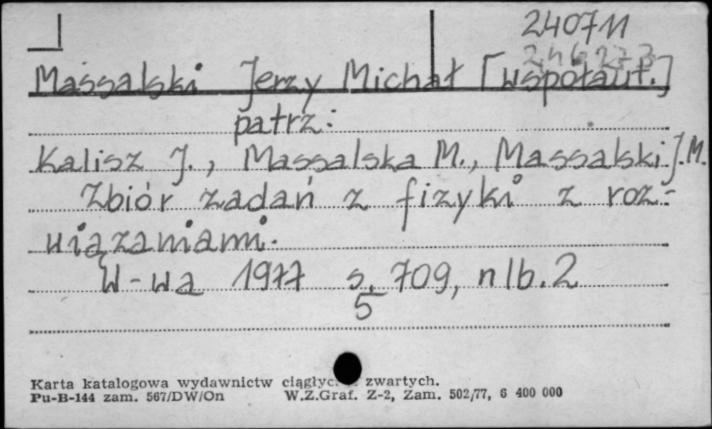 240711
246273
Massalski Jerzy Michał [współaut.]
patrz:
Kalisz J., Massalska M., Massalski J.M.
Zbiór zadań z fizyki z roz-
wiązaniami.
W-wa 1977 s. 709, nlb. 2
5
Karta katalogowa wydawnictw ciągłyc zwartych.
Pu-B-144 zam. 567/DW/On W.Z.Graf. Z-2, Zam. 502/77, 6 400 000